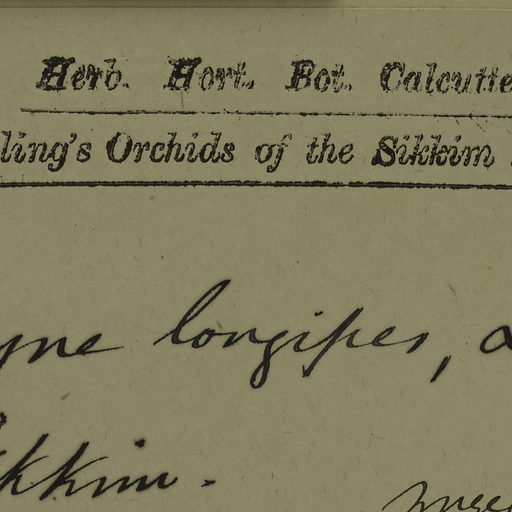 Herb. Hort. Bot. Calcutte
ling's Orchids of the Sikkim
yne longipes,
kkim.